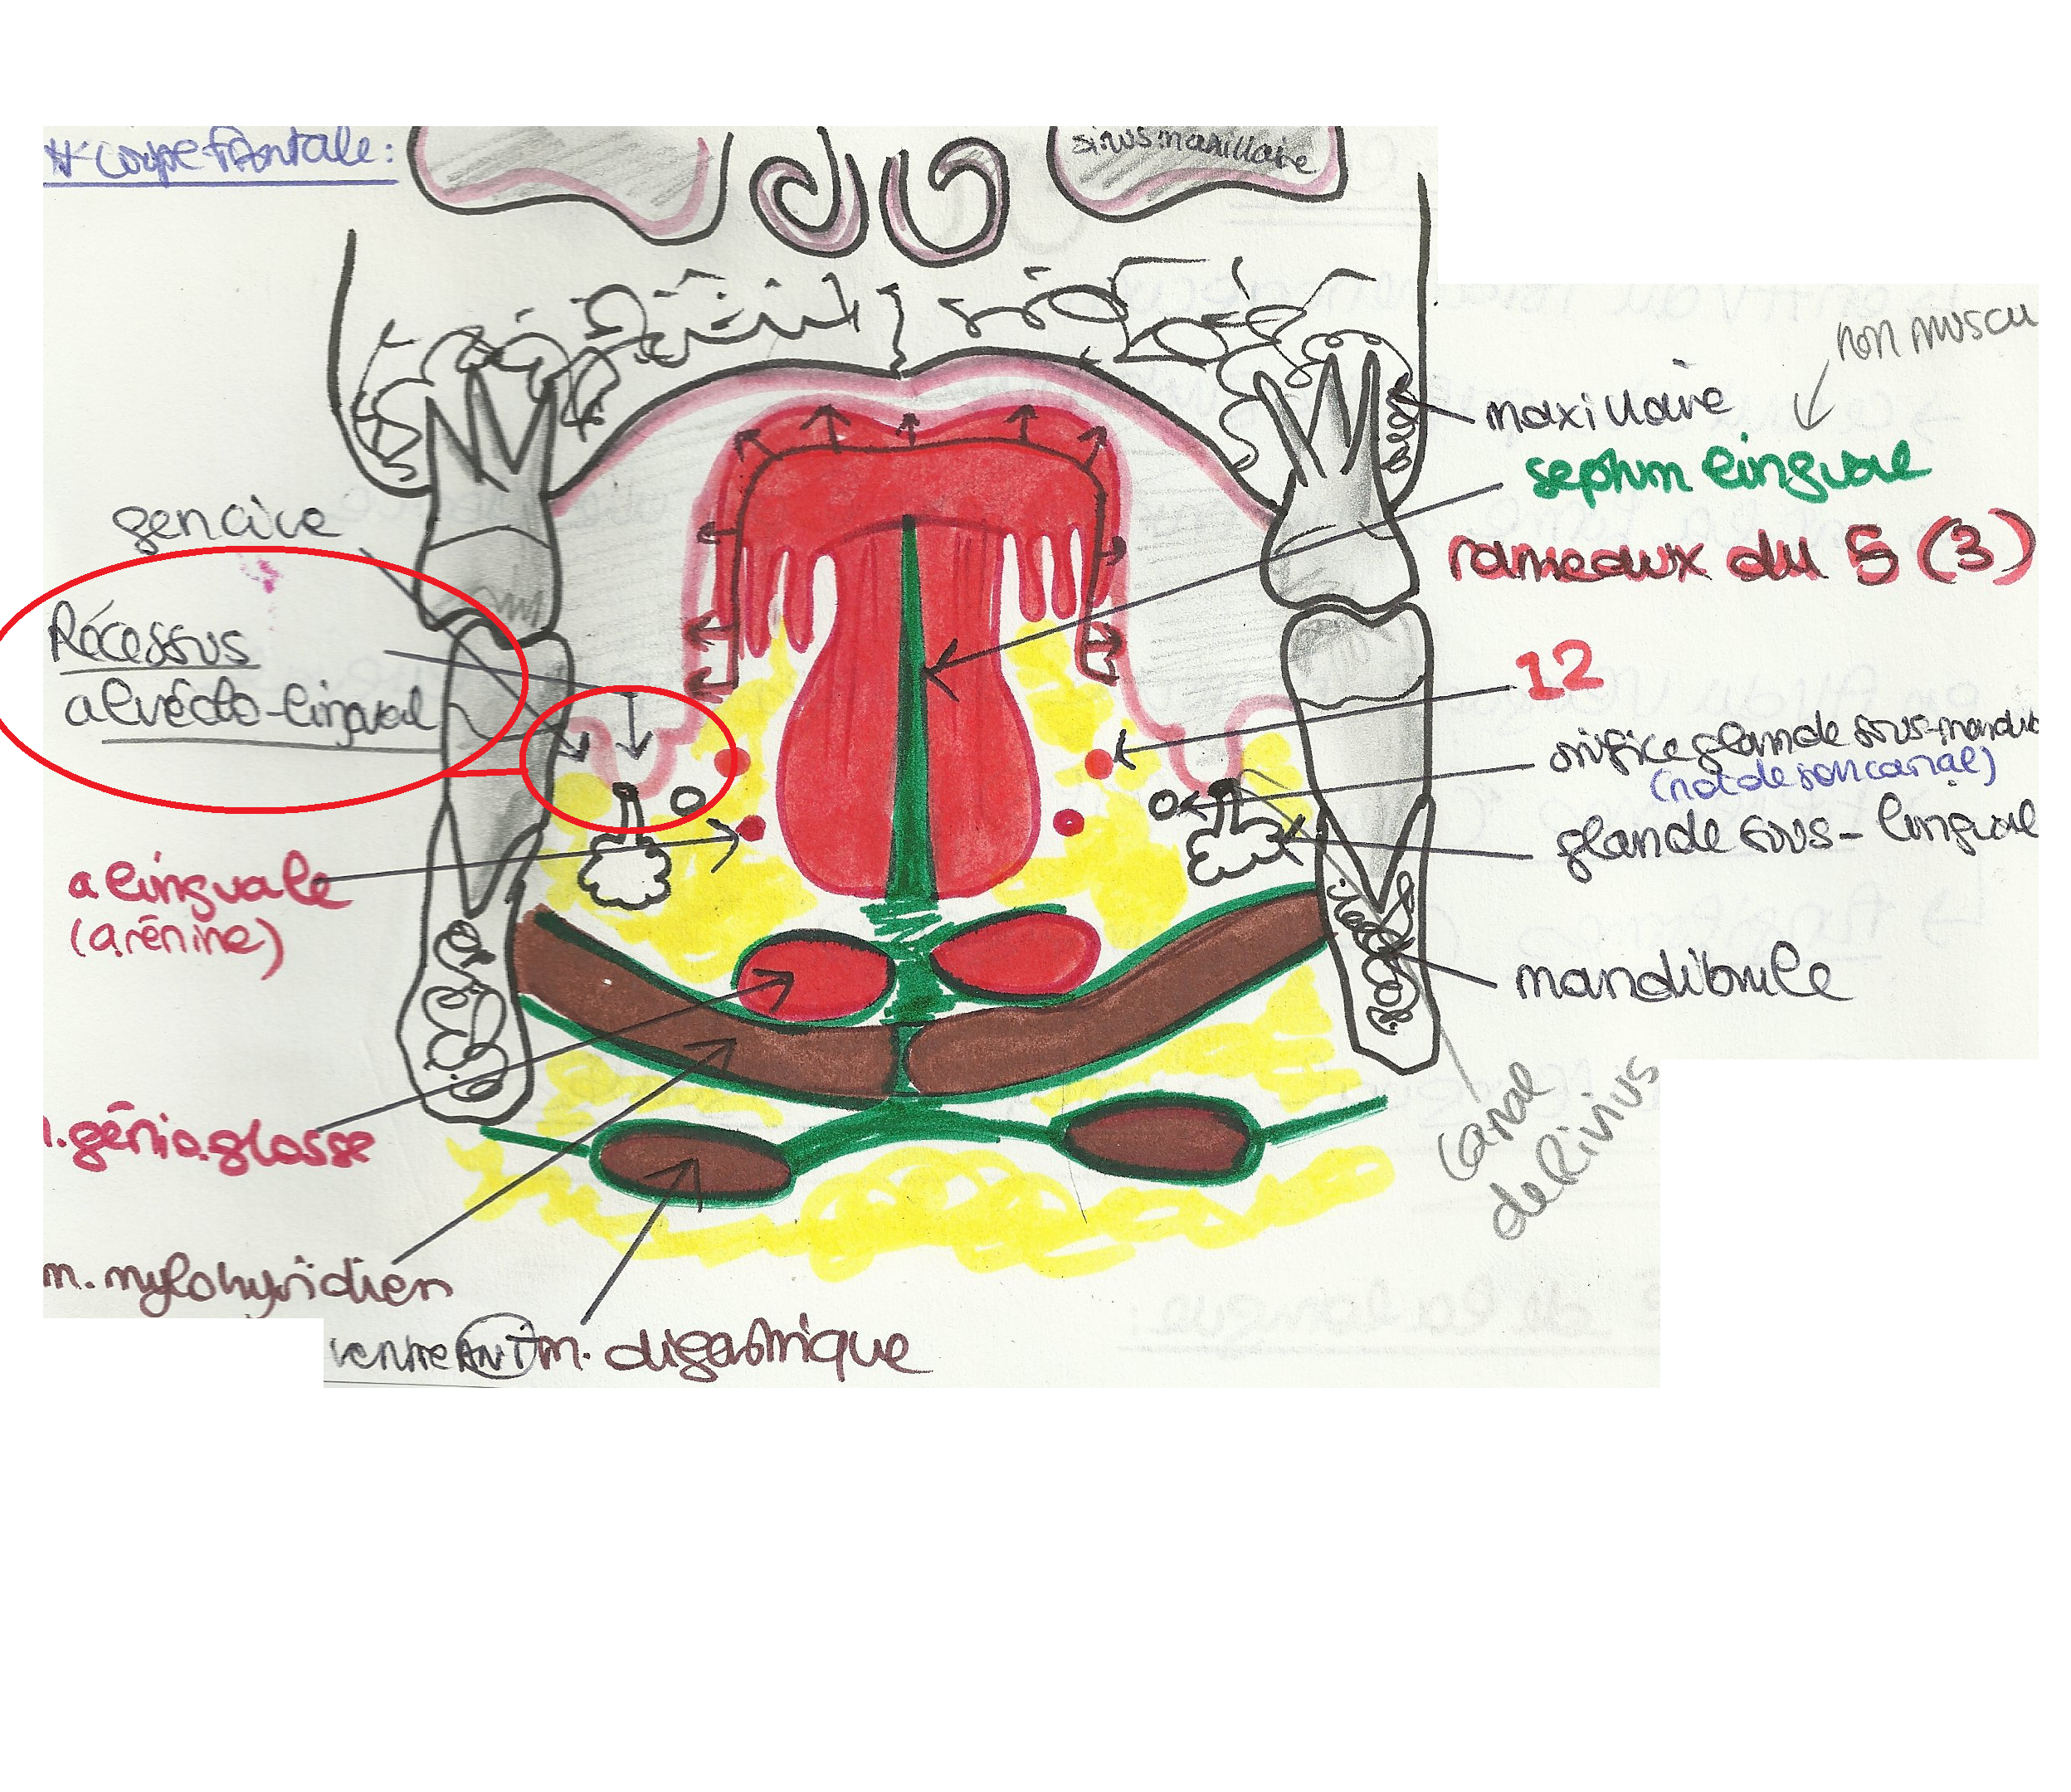 coupe frontale:
sinus maxillaire
non muscu
maxillaire
septum lingual
gencive
rameaux du 5 (3)
Récessus
alvéolo-lingual
12
orifice glande sous-mandib
(not de son canal)
glande sous-lingual
a linguale
(arénine)
mandibule
m. génioglosse
canal
de Rivinus
m. mylohyoidien
ventre ANT m. digastrique